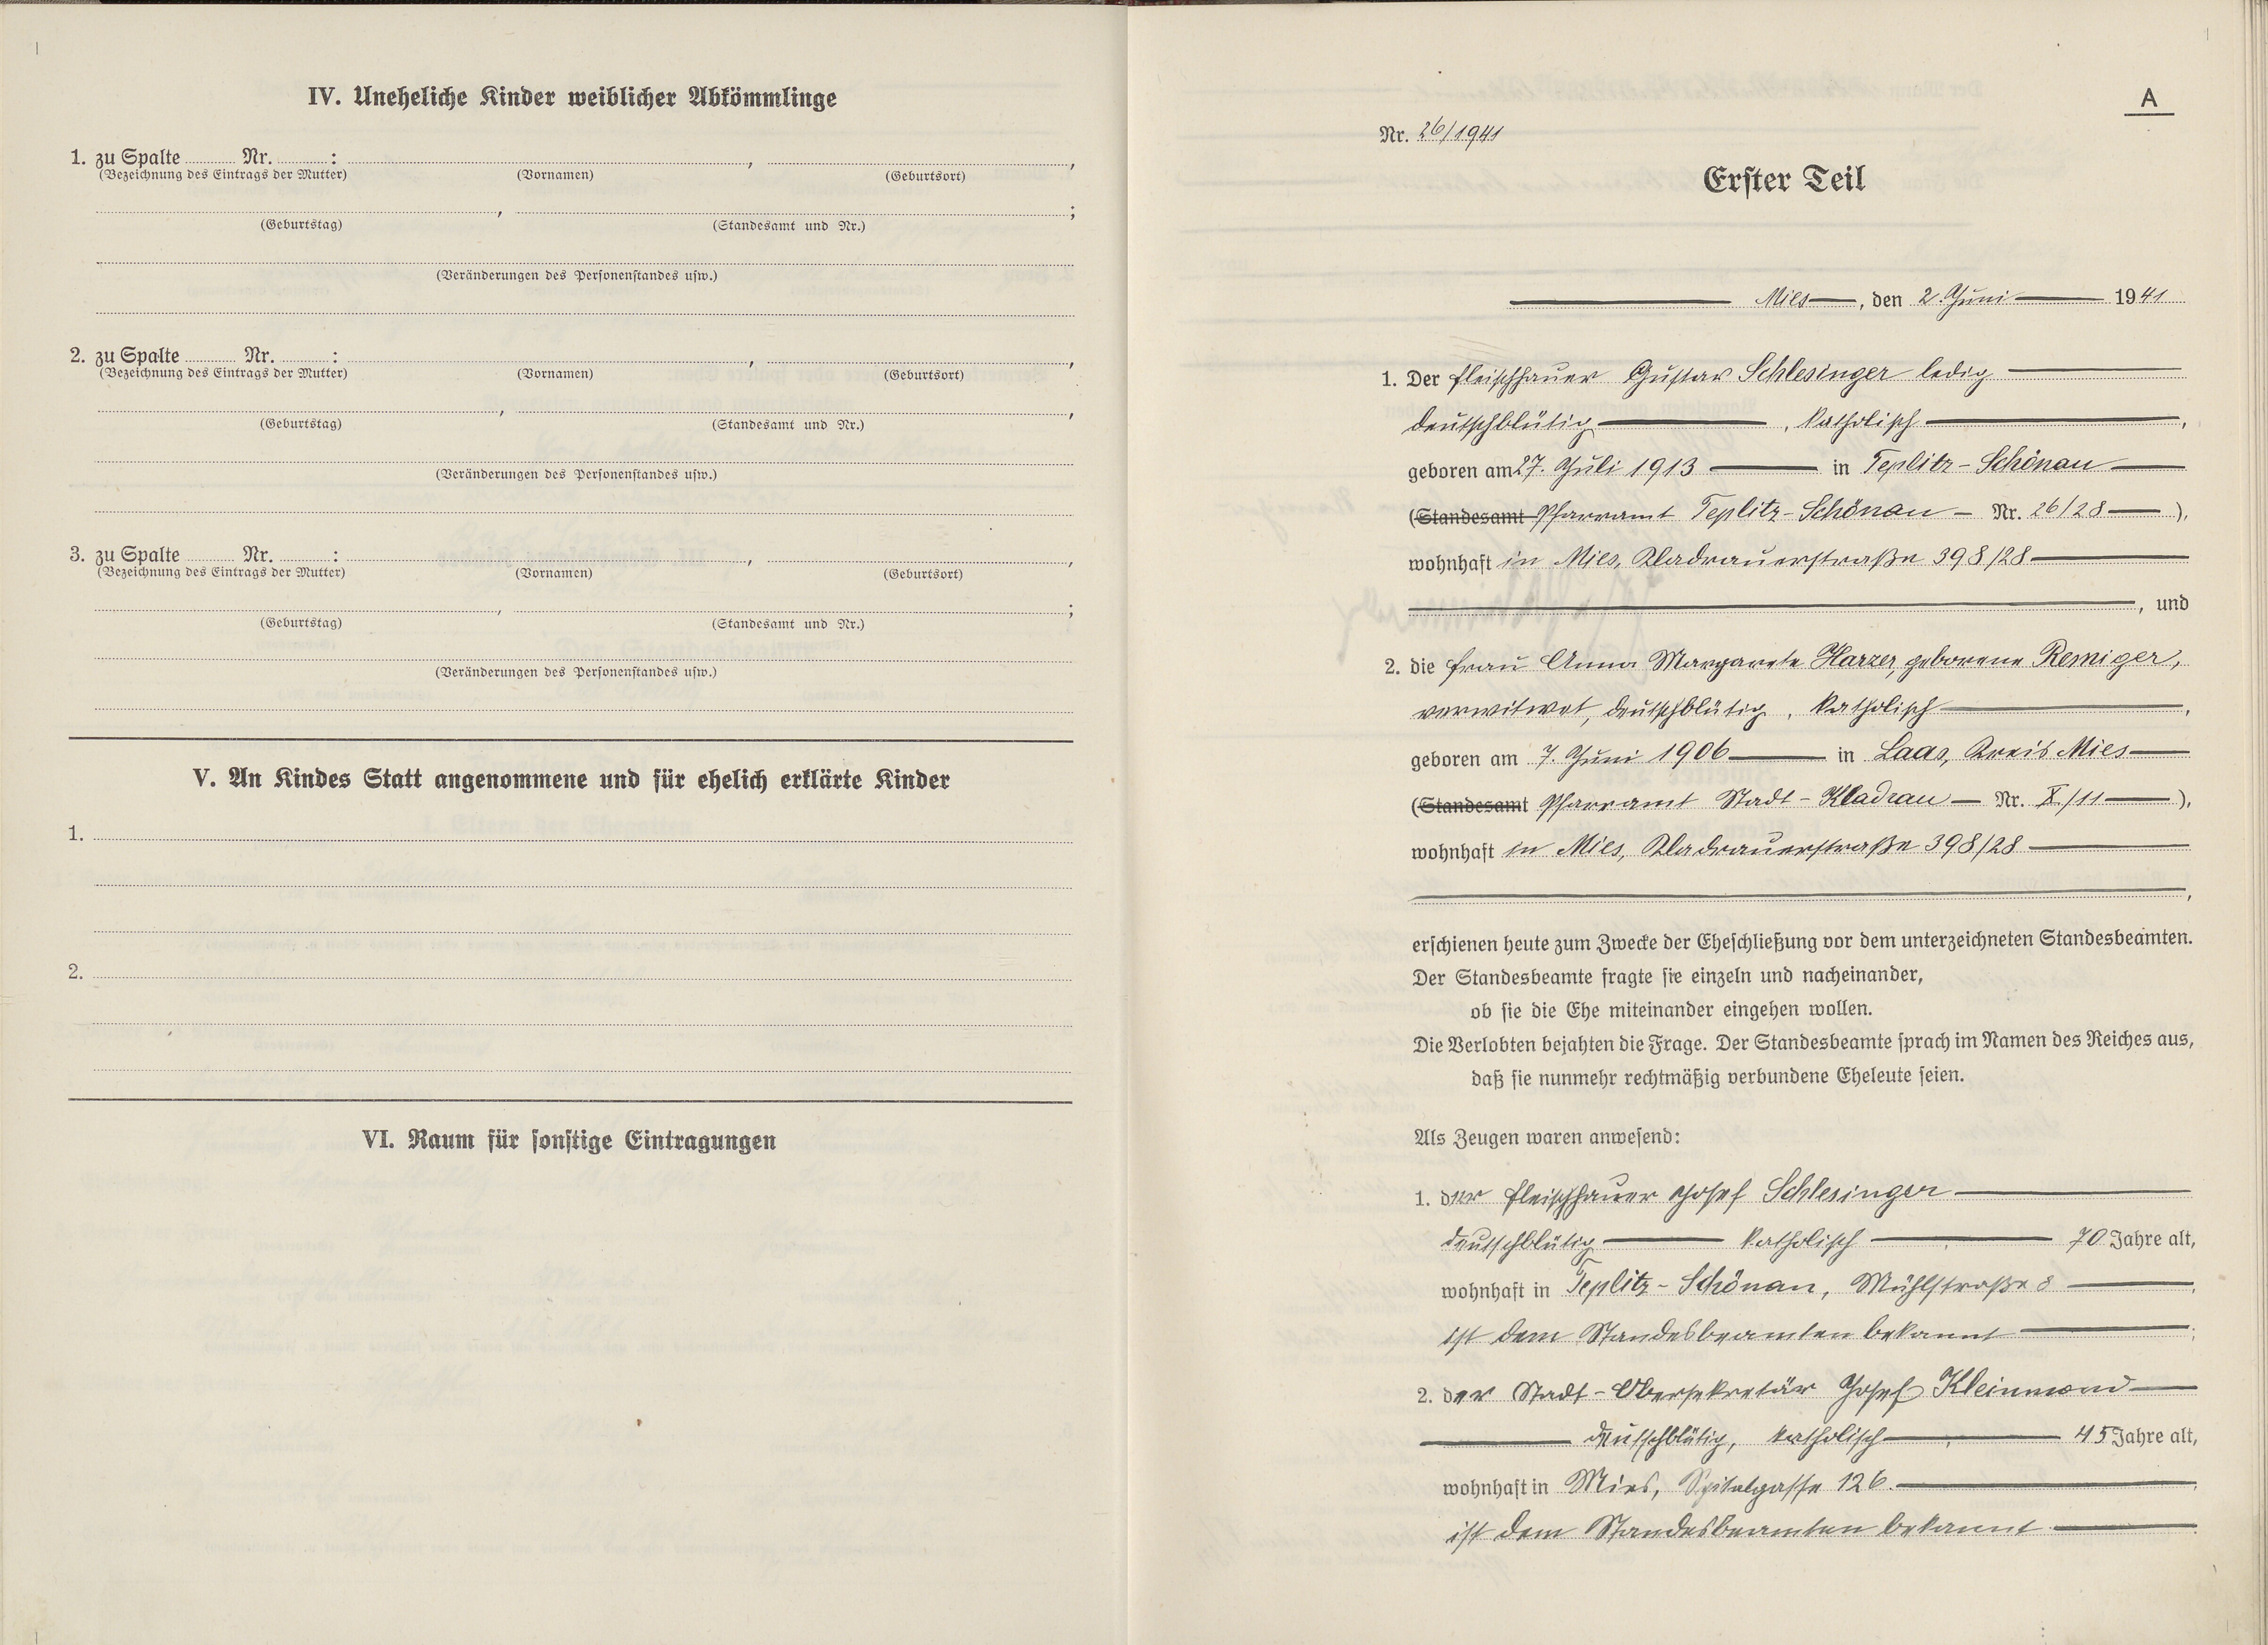 IV. Uneheliche Kinder weiblicher Abkömmlinge
1. zu Spalte Nr. : , ,
(Bezeichnung des Eintrags der Mutter) (Vornamen) (Geburtsort)
, ;
(Geburtstag) (Standesamt und Nr.)
(Veränderungen des Personenstandes usw.)
2. zu Spalte Nr. : , ,
(Bezeichnung des Eintrags der Mutter) (Vornamen) (Geburtsort)
, ,
(Geburtstag) (Standesamt und Nr.)
(Veränderungen des Personenstandes usw.)
3. zu Spalte Nr. : , ,
(Bezeichnung des Eintrags der Mutter) (Vornamen) (Geburtsort)
, ;
(Geburtstag) (Standesamt und Nr.)
(Veränderungen des Personenstandes usw.)
V. An Kindes Statt angenommene und für ehelich erklärte Kinder
1.
2.
VI. Raum für sonstige Eintragungen
A
Nr. 26/1941
Erster Teil
Mies, den 2. Juni 1941
1. Der Fleischhauer Gustav Schlesinger ledig
deutschblütig, katholisch,
geboren am 27. Juli 1913 in Teplitz-Schönau
(Standesamt Pfarramt Teplitz-Schönau Nr. 26/28),
wohnhaft in Mies, Kladrauerstraße 398/28
, und
2. die Frau Anna Margarete Harzer, geborene Remiger,
verwitwet, deutschblütig, katholisch,
geboren am 7. Juni 1906 in Laas, Kreis Mies
(Standesamt Pfarramt Stadt-Kladrau Nr. X/11),
wohnhaft in Mies, Kladrauerstraße 398/28
,
erschienen heute zum Zwecke der Eheschließung vor dem unterzeichneten Standesbeamten.
Der Standesbeamte fragte sie einzeln und nacheinander,
ob sie die Ehe miteinander eingehen wollen.
Die Verlobten bejahten die Frage. Der Standesbeamte sprach im Namen des Reiches aus,
daß sie nunmehr rechtmäßig verbundene Eheleute seien.
Als Zeugen waren anwesend:
1. der Fleischhauer Josef Schlesinger
deutschblütig katholisch, 70 Jahre alt,
wohnhaft in Teplitz-Schönau, Mühlstraße 8,
ist dem Standesbeamten bekannt;
2. der Stadt-Obersekretär Josef Kleinmond
deutschblütig, katholisch, 45 Jahre alt,
wohnhaft in Mies, Spitalgasse 126.
ist dem Standesbeamten bekannt.